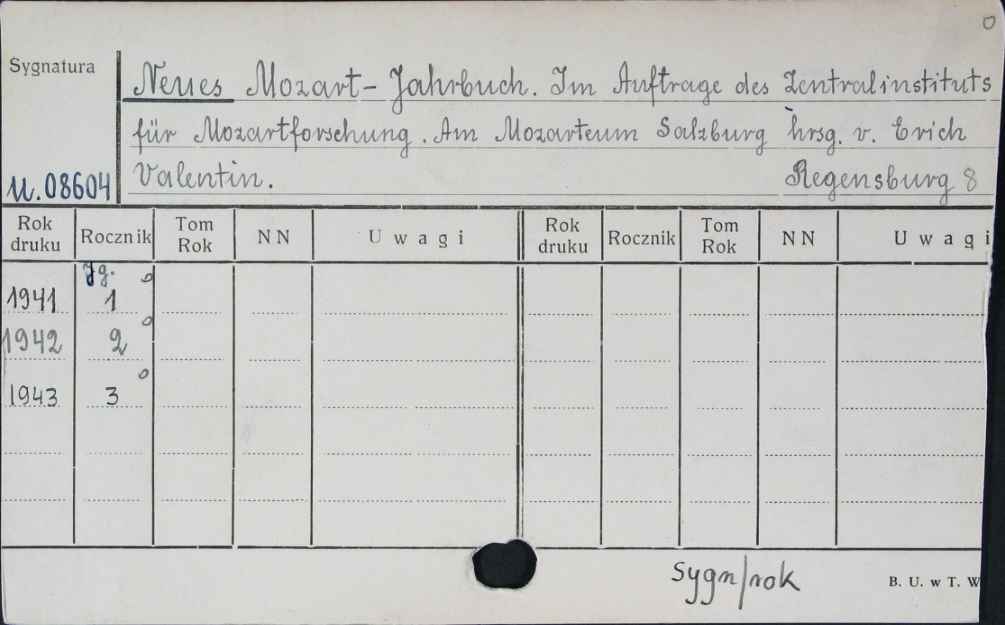 Sygnatura
Neues Mozart-Jahrbuch. Im Auftrage des Zentralinstituts
für Mozartforschung. Am Mozarteum Salzburg hrsg. v. Erich
Valentin. Regensburg 8
U. 08604
Rok druku Rocznik Tom Rok NN Uwagi Rok druku Rocznik Tom Rok NN Uwagi
Jg.
1941 1
1942 2
1943 3
sygn/rok
B. U. w T. W